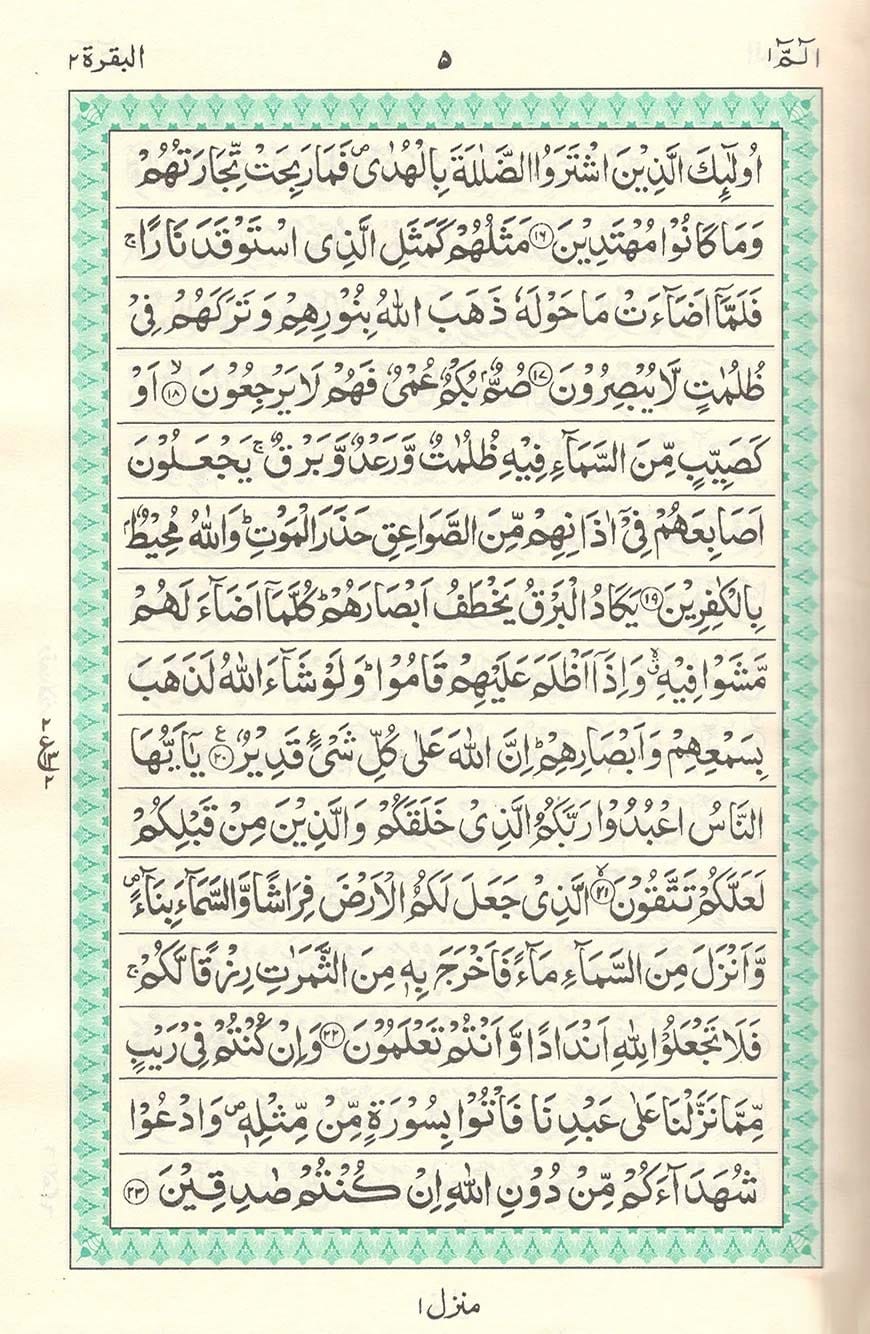 الٓمّٓ ١
٥
البقرة ٢
اُولٰٓئِكَ الَّذِيْنَ اشْتَرَوُا الضَّلٰلَةَ بِالْهُدٰى ص فَمَا رَبِحَتْ تِّجَارَتُهُمْ
وَمَا كَانُوْا مُهْتَدِيْنَ ١٦ مَثَلُهُمْ كَمَثَلِ الَّذِى اسْتَوْقَدَ نَارًا ج
فَلَمَّآ اَضَآءَتْ مَا حَوْلَهٗ ذَهَبَ اللّٰهُ بِنُوْرِهِمْ وَتَرَكَهُمْ فِيْ
ظُلُمٰتٍ لَّا يُبْصِرُوْنَ ١٧ صُمٌّۢ بُكْمٌ عُمْيٌ فَهُمْ لَا يَرْجِعُوْنَ ١٨ لا اَوْ
كَصَيِّبٍ مِّنَ السَّمَآءِ فِيْهِ ظُلُمٰتٌ وَّرَعْدٌ وَّبَرْقٌ ج يَجْعَلُوْنَ
اَصَابِعَهُمْ فِيْٓ اٰذَانِهِمْ مِّنَ الصَّوَاعِقِ حَذَرَ الْمَوْتِ ط وَاللّٰهُ مُحِيْطٌۢ
بِالْكٰفِرِيْنَ ١٩ يَكَادُ الْبَرْقُ يَخْطَفُ اَبْصَارَهُمْ ط كُلَّمَآ اَضَآءَ لَهُمْ
مَّشَوْا فِيْهِ وَاِذَآ اَظْلَمَ عَلَيْهِمْ قَامُوْا ط وَلَوْ شَآءَ اللّٰهُ لَذَهَبَ
بِسَمْعِهِمْ وَاَبْصَارِهِمْ ط اِنَّ اللّٰهَ عَلٰى كُلِّ شَيْءٍ قَدِيْرٌ ٢٠ ع يٰٓاَيُّهَا
النَّاسُ اعْبُدُوْا رَبَّكُمُ الَّذِيْ خَلَقَكُمْ وَالَّذِيْنَ مِنْ قَبْلِكُمْ
لَعَلَّكُمْ تَتَّقُوْنَ ٢١ لا الَّذِيْ جَعَلَ لَكُمُ الْاَرْضَ فِرَاشًا وَّالسَّمَآءَ بِنَآءً ص
وَّاَنْزَلَ مِنَ السَّمَآءِ مَآءً فَاَخْرَجَ بِهٖ مِنَ الثَّمَرٰتِ رِزْقًا لَّكُمْ ج
فَلَا تَجْعَلُوْا لِلّٰهِ اَنْدَادًا وَّاَنْتُمْ تَعْلَمُوْنَ ٢٢ وَاِنْ كُنْتُمْ فِيْ رَيْبٍ
مِّمَّا نَزَّلْنَا عَلٰى عَبْدِنَا فَاْتُوْا بِسُوْرَةٍ مِّنْ مِّثْلِهٖ ص وَادْعُوْا
شُهَدَآءَكُمْ مِّنْ دُوْنِ اللّٰهِ اِنْ كُنْتُمْ صٰدِقِيْنَ ٢٣
منزل ١